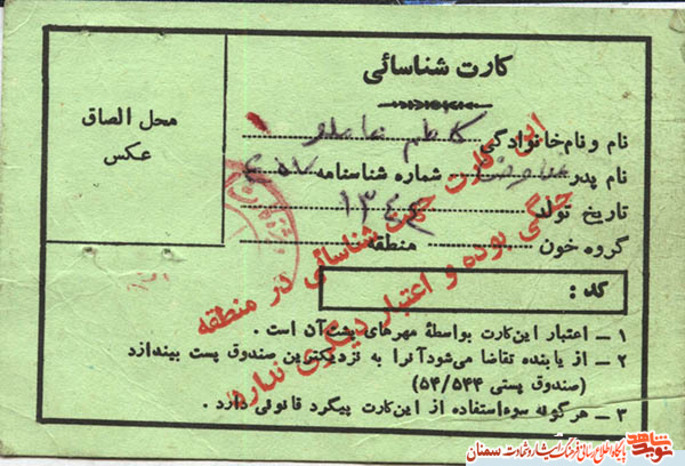 کارت شناسائی
محل الصاق
عکس
نام و نام خانوادگی کاظم عاملو
نام پدر شماره شناسنامه ۴۵۷
تاریخ تولد ۱۳۴۴
گروه خون منطقه
کد :
۱ – اعتبار این کارت بواسطهٔ مهرهای پشت آن است .
۲ – از یابنده تقاضا می‌شود آنرا به نزدیکترین صندوق پست بیندازد
(صندوق پستی ۵۴/۵۴۴)
۳ – هرگونه سوء استفاده از این کارت پیگرد قانونی دارد .
این کارت جهت شناسائی در منطقه
جنگی بوده و اعتبار دیگری ندارد
نوید شاهد
پایگاه اطلاع رسانی فرهنگ ایثار و شهادت سمنان